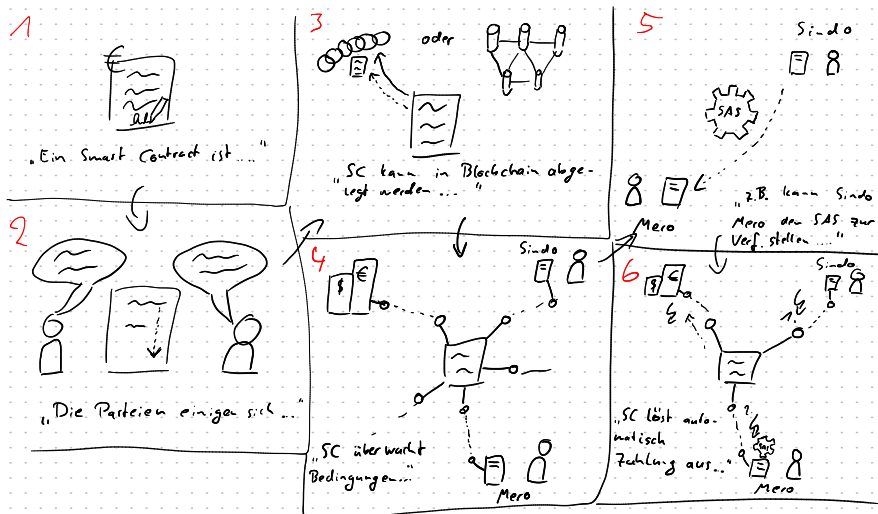 1
€
„Ein Smart Contract ist...."
2
„Die Parteien einigen sich..."
3
oder
„SC kann in Blockchain abge-
legt werden...."
4
$ €
Sindo
„SC überwacht
Bedingungen..."
Mero
5
Sindo
SAS
Mero
„z.B. kann Sindo
Mero den SAS zur
Verf. stellen...."
6
$ €
Sindo
„SC löst auto-
matisch
Zahlung aus..."
SAS
Mero